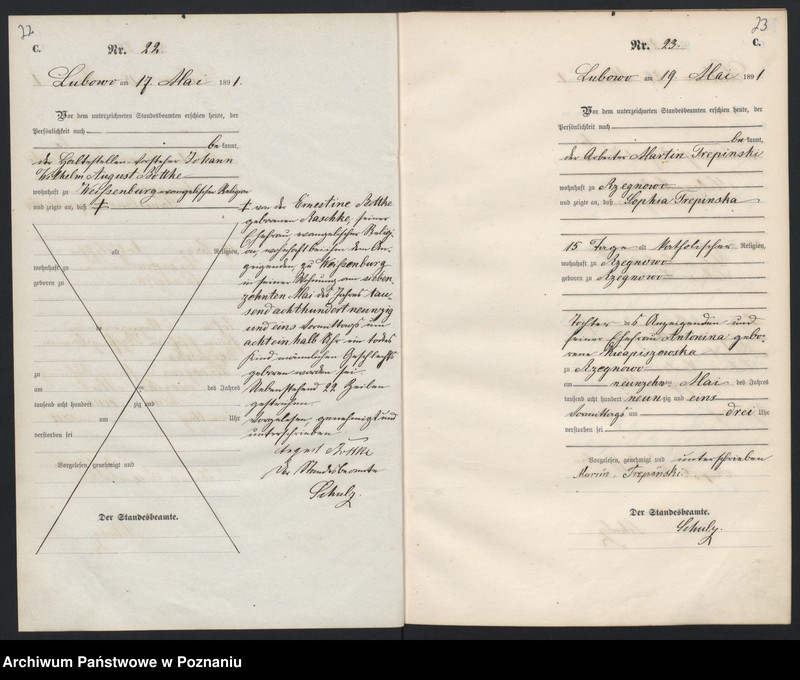 22
C.
Nr. 22
Lubowo am 17. Mai 1891.
Vor dem unterzeichneten Standesbeamten erschien heute, der
Persönlichkeit nach
bekannt,
der Haltestellen-Vorsteher Johann
Wilhelm August Bottke
wohnhaft zu Weißenburg evangelischer Religion
und zeigte an, daß †
alt Religion,
wohnhaft zu
geboren zu
zu
am des Jahres
tausend acht hundert zig und
um Uhr
verstorben sei
Vorgelesen, genehmigt und
Der Standesbeamte.
† von der Ernestine Bottke
geborenen Raschke, seiner
Ehefrau, evangelischer Religi-
on, wohnhaft bei ihm dem An-
zeigenden, zu Weißenburg
in seiner Wohnung am sieben-
zehnten Mai des Jahres tau-
send achthundert neunzig
und eins Vormittags um
acht einhalb Uhr ein todtes
Kind männlichen Geschlechts
geboren worden sei.
Nebenstehend 22 Zeilen
gestrichen.
Vorgelesen, genehmigt und
unterschrieben
August Bottke
Der Standesbeamte
Schulz.
23
C.
Nr. 23.
Lubowo am 19. Mai 1891
Vor dem unterzeichneten Standesbeamten erschien heute, der
Persönlichkeit nach
bekannt,
der Arbeiter Martin Trepinski
wohnhaft zu Rzegnowo
und zeigte an, daß Sophia Trepinska
15 Tage alt katholischer Religion,
wohnhaft zu Rzegnowo
geboren zu Rzegnowo
Tochter des Anzeigenden und
seiner Ehefrau Antonina gebo-
rene
zu Rzegnowo
am neunzehnten Mai des Jahres
tausend acht hundert neunzig und eins
Vormittags um drei Uhr
verstorben sei
Vorgelesen, genehmigt und unterschrieben
Marcin Trepiński.
Der Standesbeamte.
Schulz.
Archiwum Państwowe w Poznaniu